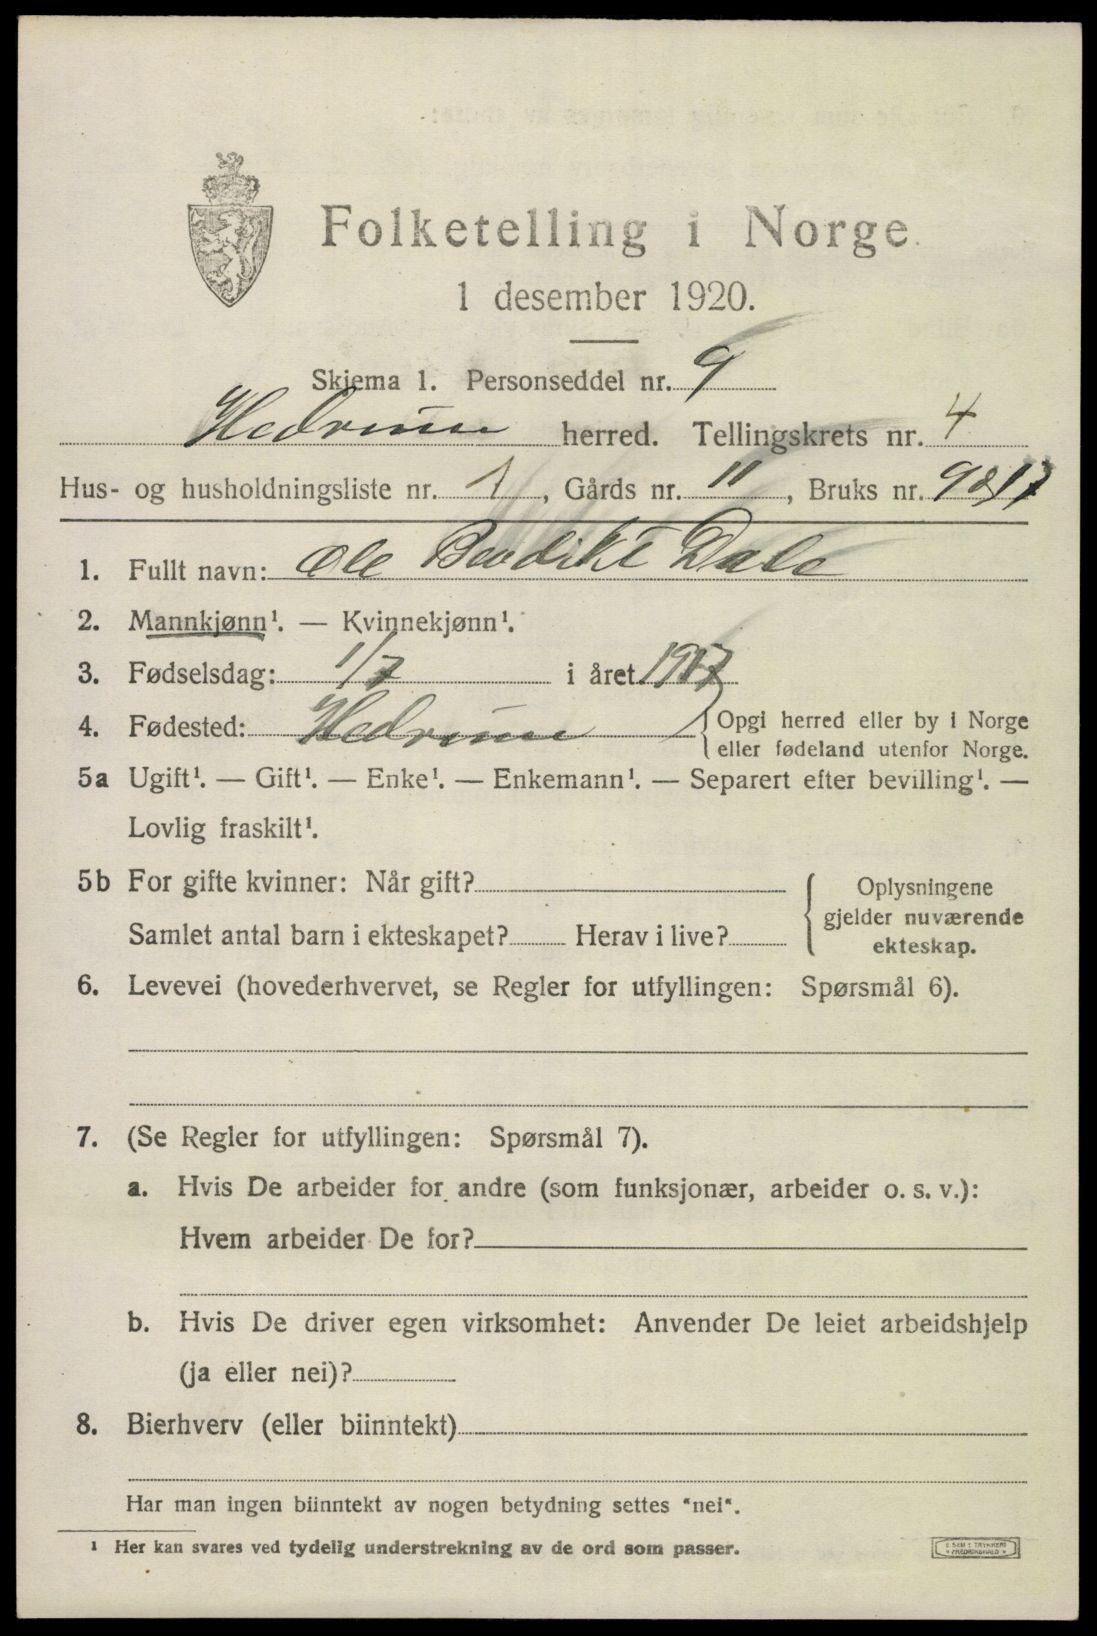 Folketelling i Norge
1 desember 1920.
Skjema 1. Personseddel nr. 9
Hedrum herred. Tellingskrets nr. 4
Hus- og husholdningsliste nr. 1, Gårds nr. 11, Bruks nr. 9 & 17
1. Fullt navn: Ole Bendikt Dale
2. Mannkjønn¹. — Kvinnekjønn¹.
3. Fødselsdag: 1/7 i året 1917
4. Fødested: Hedrum { Opgi herred eller by i Norge
eller fødeland utenfor Norge.
5a Ugift¹. — Gift¹. — Enke¹. — Enkemann¹. — Separert efter bevilling¹. —
Lovlig fraskilt¹.
5b For gifte kvinner: Når gift?
Samlet antal barn i ekteskapet? Herav i live?
Oplysningene
gjelder nuværende
ekteskap.
6. Levevei (hovederhvervet, se Regler for utfyllingen: Spørsmål 6).
7. (Se Regler for utfyllingen: Spørsmål 7).
a. Hvis De arbeider for andre (som funksjonær, arbeider o. s. v.):
Hvem arbeider De for?
b. Hvis De driver egen virksomhet: Anvender De leiet arbeidshjelp
(ja eller nei)?
8. Bierhverv (eller biinntekt)
Har man ingen biinntekt av nogen betydning settes "nei".
¹ Her kan svares ved tydelig understrekning av de ord som passer.